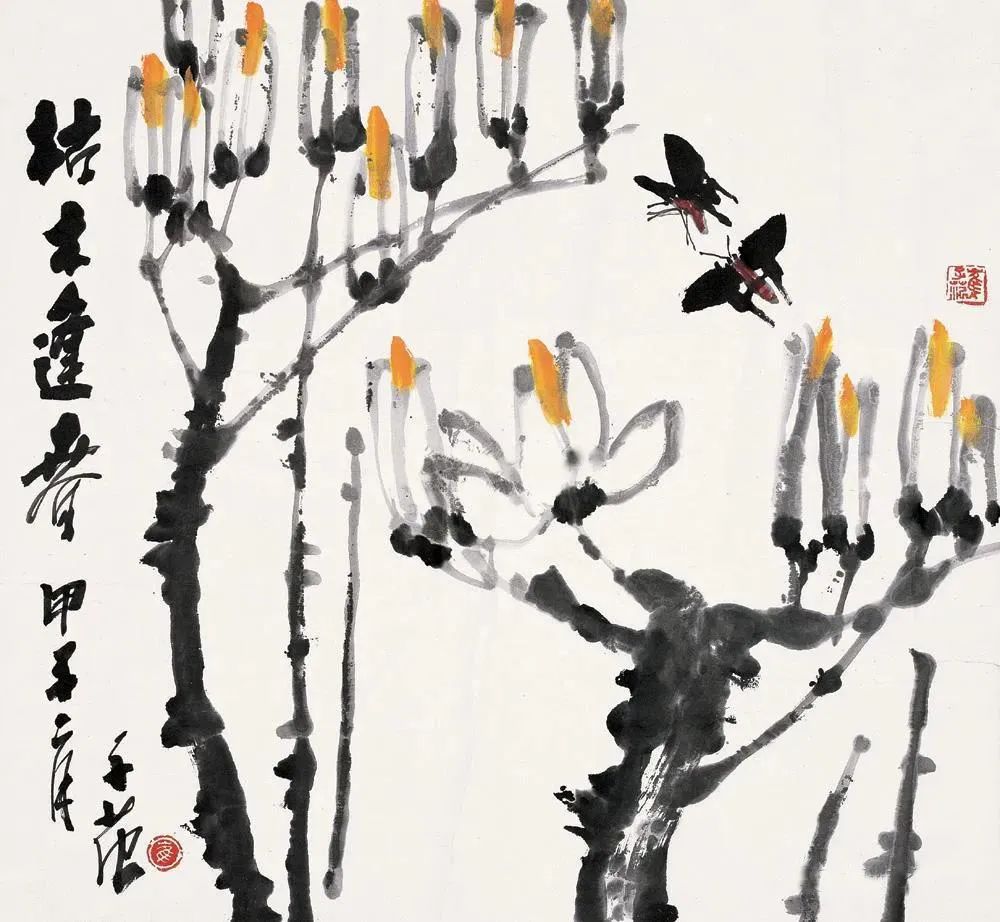 枯木逢春 甲子二月
子范